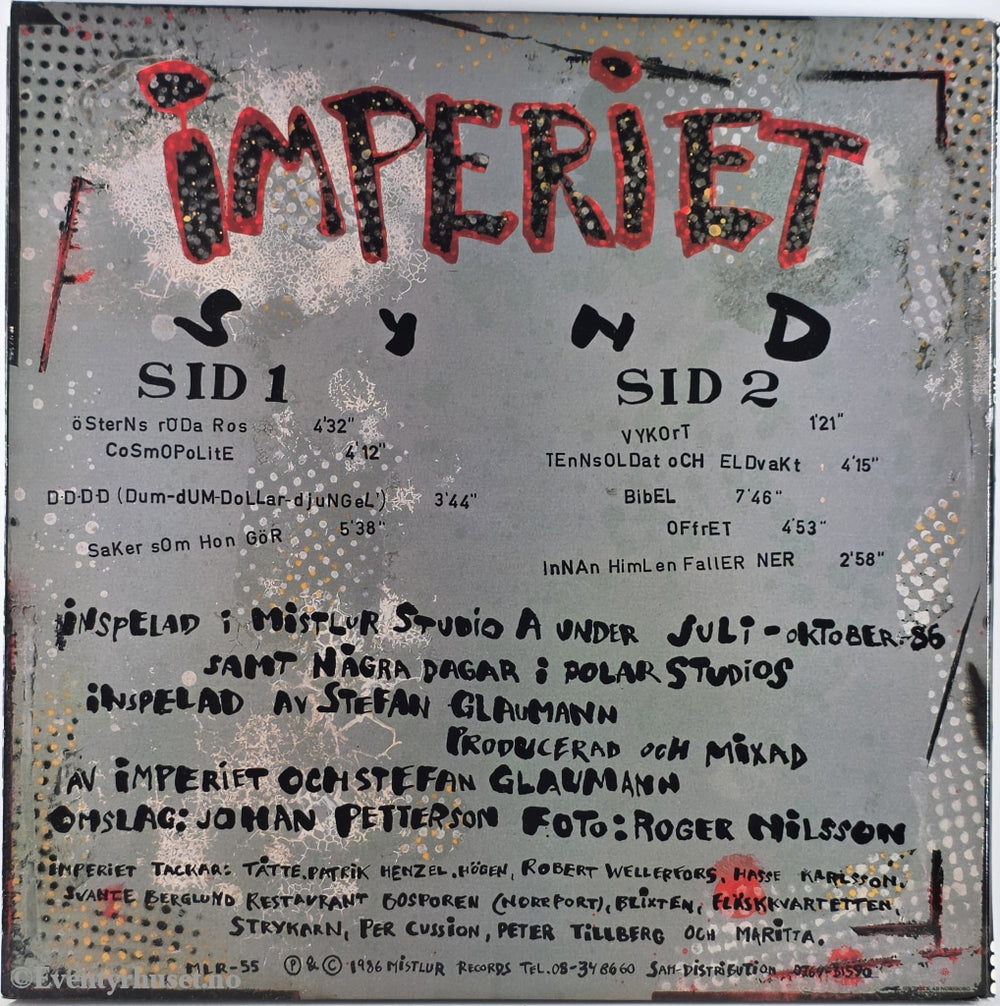 iMPERiET
SYND
SID 1
öSterNs rÖDa Ros 4'32"
CoSmOPoLitE 4'12"
D·D·D·D (Dum-dUM-DoLLar-djuNGeL') 3'44"
SaKer sOm Hon GöR 5'38"
SID 2
VYKOrT 1'21"
TEnNsOLDat oCH ELDvaKt 4'15"
BibEL 7'46"
OFfrET 4'53"
InNAn HimLen FallER NER 2'58"
iNSPELAD i MiSTLUR STUDiO A UNDER JULi-OKTOBER-86
SAMT NÅGRA DAGAR i POLAR STUDiOS
iNSPELAD AV STEFAN GLAUMANN
PRODUCERAD OCH MiXAD
AV iMPERiET OCH STEFAN GLAUMANN
OMSLAG: JOHAN PETTERSON FOTO: ROGER NiLSSON
iMPERiET TACKAR: TÅTTE, PATRiK HENZEL, HÖGEN, ROBERT WELLERFORS, HASSE KARLSSON,
SVANTE BERGLUND RESTAURANT BOSPOREN (NORRPORT), BLiXTEN, FLÄSKKVARTETTEN,
STRYKARN, PER CUSSiON, PETER TiLLBERG OCH MARiTTA.
MLR-55 Ⓟ & © 1986 MiSTLUR RECORDS TEL. 08-34 86 60 SAM-DiSTRiBUTiON 0764-31590
©Eventyrhuset.no